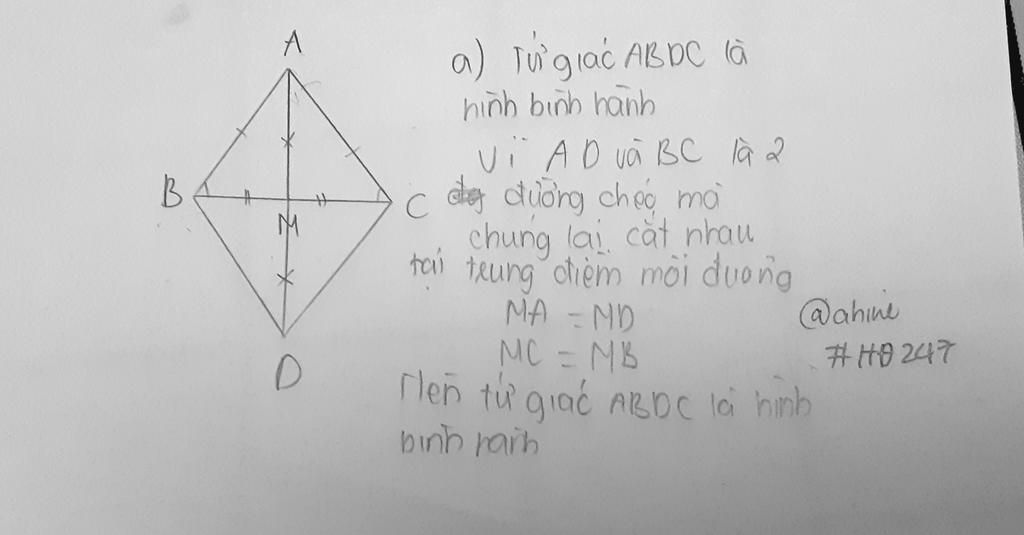 A
B
C
M
D
a) Tứ giác ABDC là
hình bình hành
Vì AD và BC là 2
đường chéo mà
chúng lại cắt nhau
tại trung điểm mỗi đường
MA = MD
MC = MB
Nên tứ giác ABDC là hình
bình hành
@ahine
#HĐ247